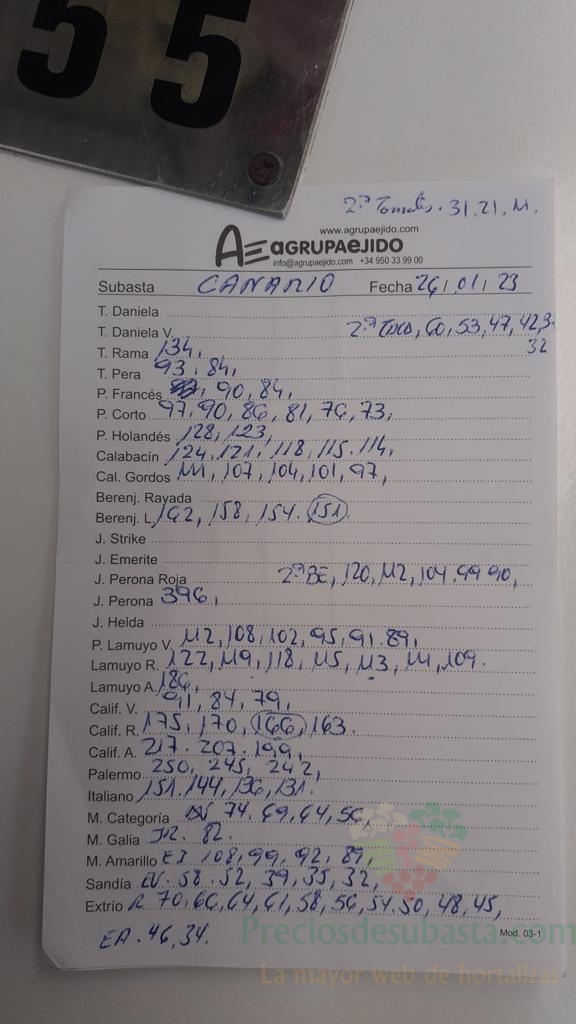 55
2ª Tomates. 31, 21, 11.
www.agrupaejido.com
AE AGRUPAEJIDO
info@agrupaejido.com +34 950 33 99 00
Subasta CANARIO Fecha 26/01/23
T. Daniela
T. Daniela V. 2ª TOCO, 60, 53, 47, 42, 3
T. Rama 134, 32
T. Pera 93, 84,
P. Francés 90, 84,
P. Corto 97, 90, 86, 81, 76, 73,
P. Holandés 128, 123,
Calabacín 124, 121, 118, 115, 114,
Cal. Gordos 111, 107, 104, 101, 97,
Berenj. Rayada
Berenj. L 162, 158, 154. 151
J. Strike
J. Emerite
J. Perona Roja 2ª BE, 120, 112, 104, 99 90,
J. Perona 396,
J. Helda
P. Lamuyo V. 112, 108, 102, 95, 91. 89,
Lamuyo R. 122, 119, 118, 115, 113, 111, 109.
Lamuyo A. 186,
Calif. V. 91, 84, 79,
Calif. R. 175, 170, 166, 163.
Calif. A. 217. 207. 199,
Palermo 250, 245, 242,
Italiano 151. 144, 136, 131.
M. Categoría 74. 69, 64, 56,
M. Galia 82.
M. Amarillo EJ 108, 99, 92, 89,
Sandía EV. 58. 52, 39, 35, 32,
Extrío R 70, 66, 64, 61, 58, 56, 54. 50, 48, 45,
EA. 46, 34.
Mod. 03-1
Preciosdesubasta.com
La mayor web de hortalizas